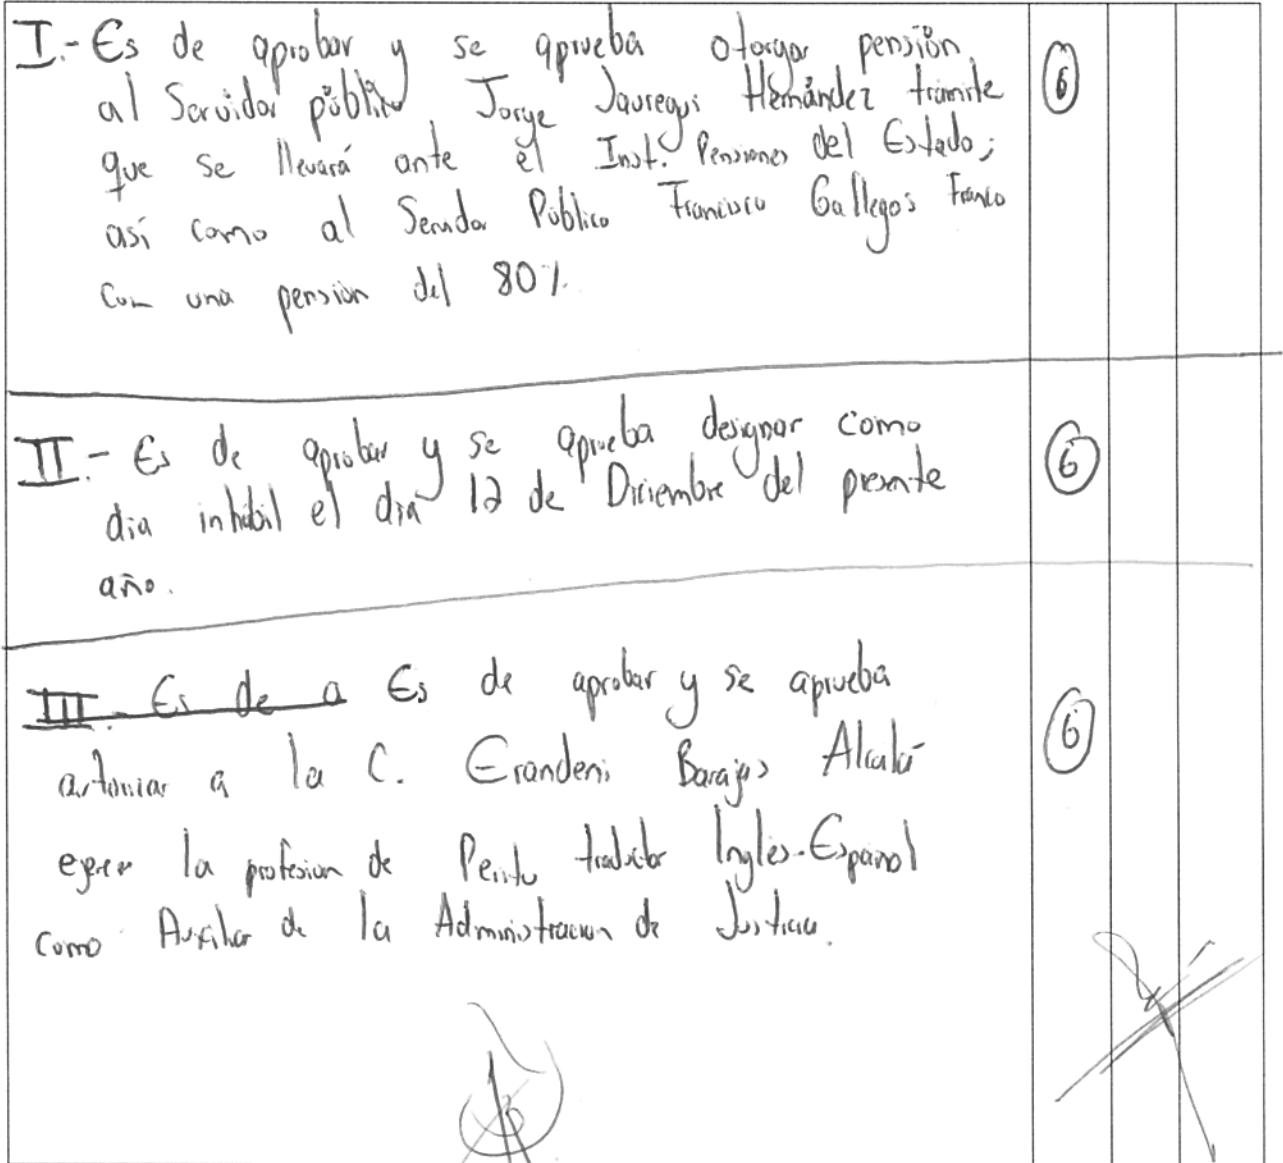 I.- Es de aprobar y se aprueba otorgar pensión
al Servidor público Jorge Jauregui Hernández tramite
que se llevará ante el Inst. Pensiones del Estado;
así como al Servidor Público Francisco Gallegos Franco
Con una pensión del 80%.
6
II.- Es de aprobar y se aprueba designar como
dia inhábil el dia 12 de Diciembre del presente
año.
6
III.- Es de a Es de aprobar y se aprueba
autorizar a la C. Erandeni Barajas Alcalá
ejercer la profesion de Perito traductor Inglés-Español
como Auxiliar de la Administracion de Justicia.
6